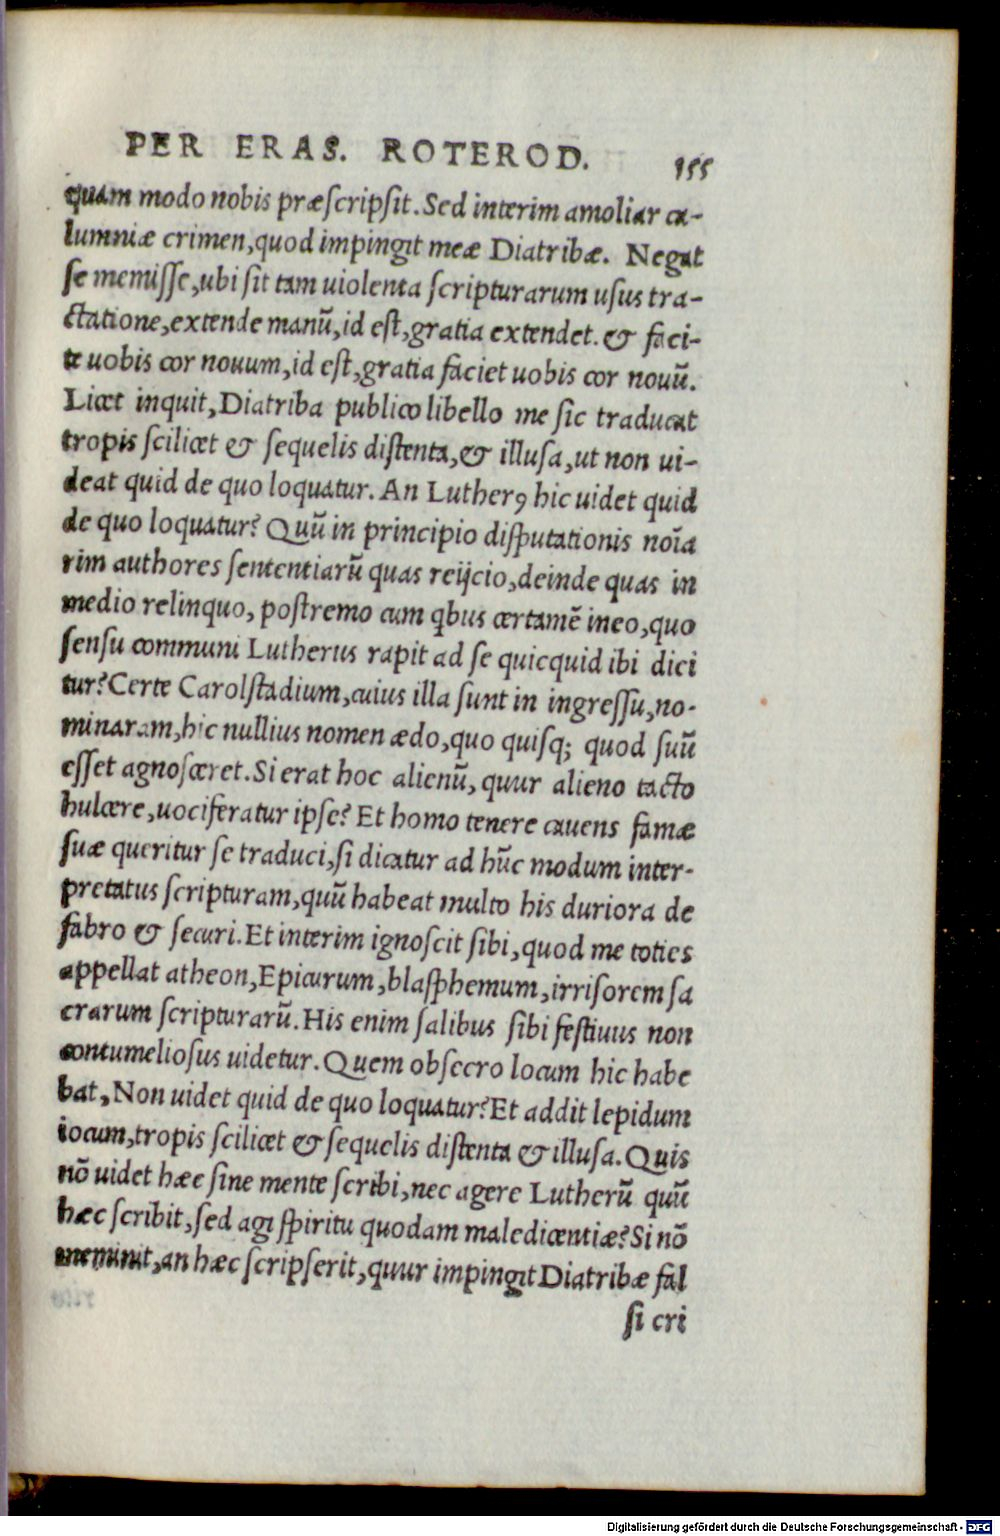 PER ERAS. ROTEROD. 155
quam modo nobis præscripsit. Sed interim amoliar ca-
lumniæ crimen, quod impingit meæ Diatribæ. Negat
se memisse, ubi sit tam uiolenta scripturarum usus tra-
ctatione, extende manū, id est, gratia extendet. & faci-
te uobis cor nouum, id est, gratia faciet uobis cor nouū.
Licet inquit, Diatriba publico libello me sic traducat
tropis scilicet & sequelis distenta, & illusa, ut non ui-
deat quid de quo loquatur. An Lutherꝰ hic uidet quid
de quo loquatur? Quū in principio disputationis noīa
rim authores sententiarū quas reijcio, deinde quas in
medio relinquo, postremo cum qbus certamē ineo, quo
sensu communi Lutherus rapit ad se quicquid ibi dici
tur? Certe Carolstadium, cuius illa sunt in ingressu, no-
minaram, hic nullius nomen ædo, quo quisq; quod suū
esset agnosceret. Si erat hoc alienū, quur alieno tacto
hulcere, uociferatur ipse? Et homo tenere cauens famæ
suæ queritur se traduci, si dicatur ad hūc modum inter-
pretatus scripturam, quū habeat multo his duriora de
fabro & securi. Et interim ignoscit sibi, quod me toties
appellat atheon, Epicurum, blasphemum, irrisorem sa
crarum scripturarū. His enim salibus sibi festiuus non
contumeliosus uidetur. Quem obsecro locum hic habe
bat, Non uidet quid de quo loquatur? Et addit lepidum
iocum, tropis scilicet & sequelis distenta & illusa. Quis
nō uidet hæc sine mente scribi, nec agere Lutherū quū
hæc scribit, sed agi spiritu quodam maledicentiæ? Si nō
meminit, an hæc scripserit, quur impingit Diatribæ fal
si cri
Digitalisierung gefördert durch die Deutsche Forschungsgemeinschaft - DFG